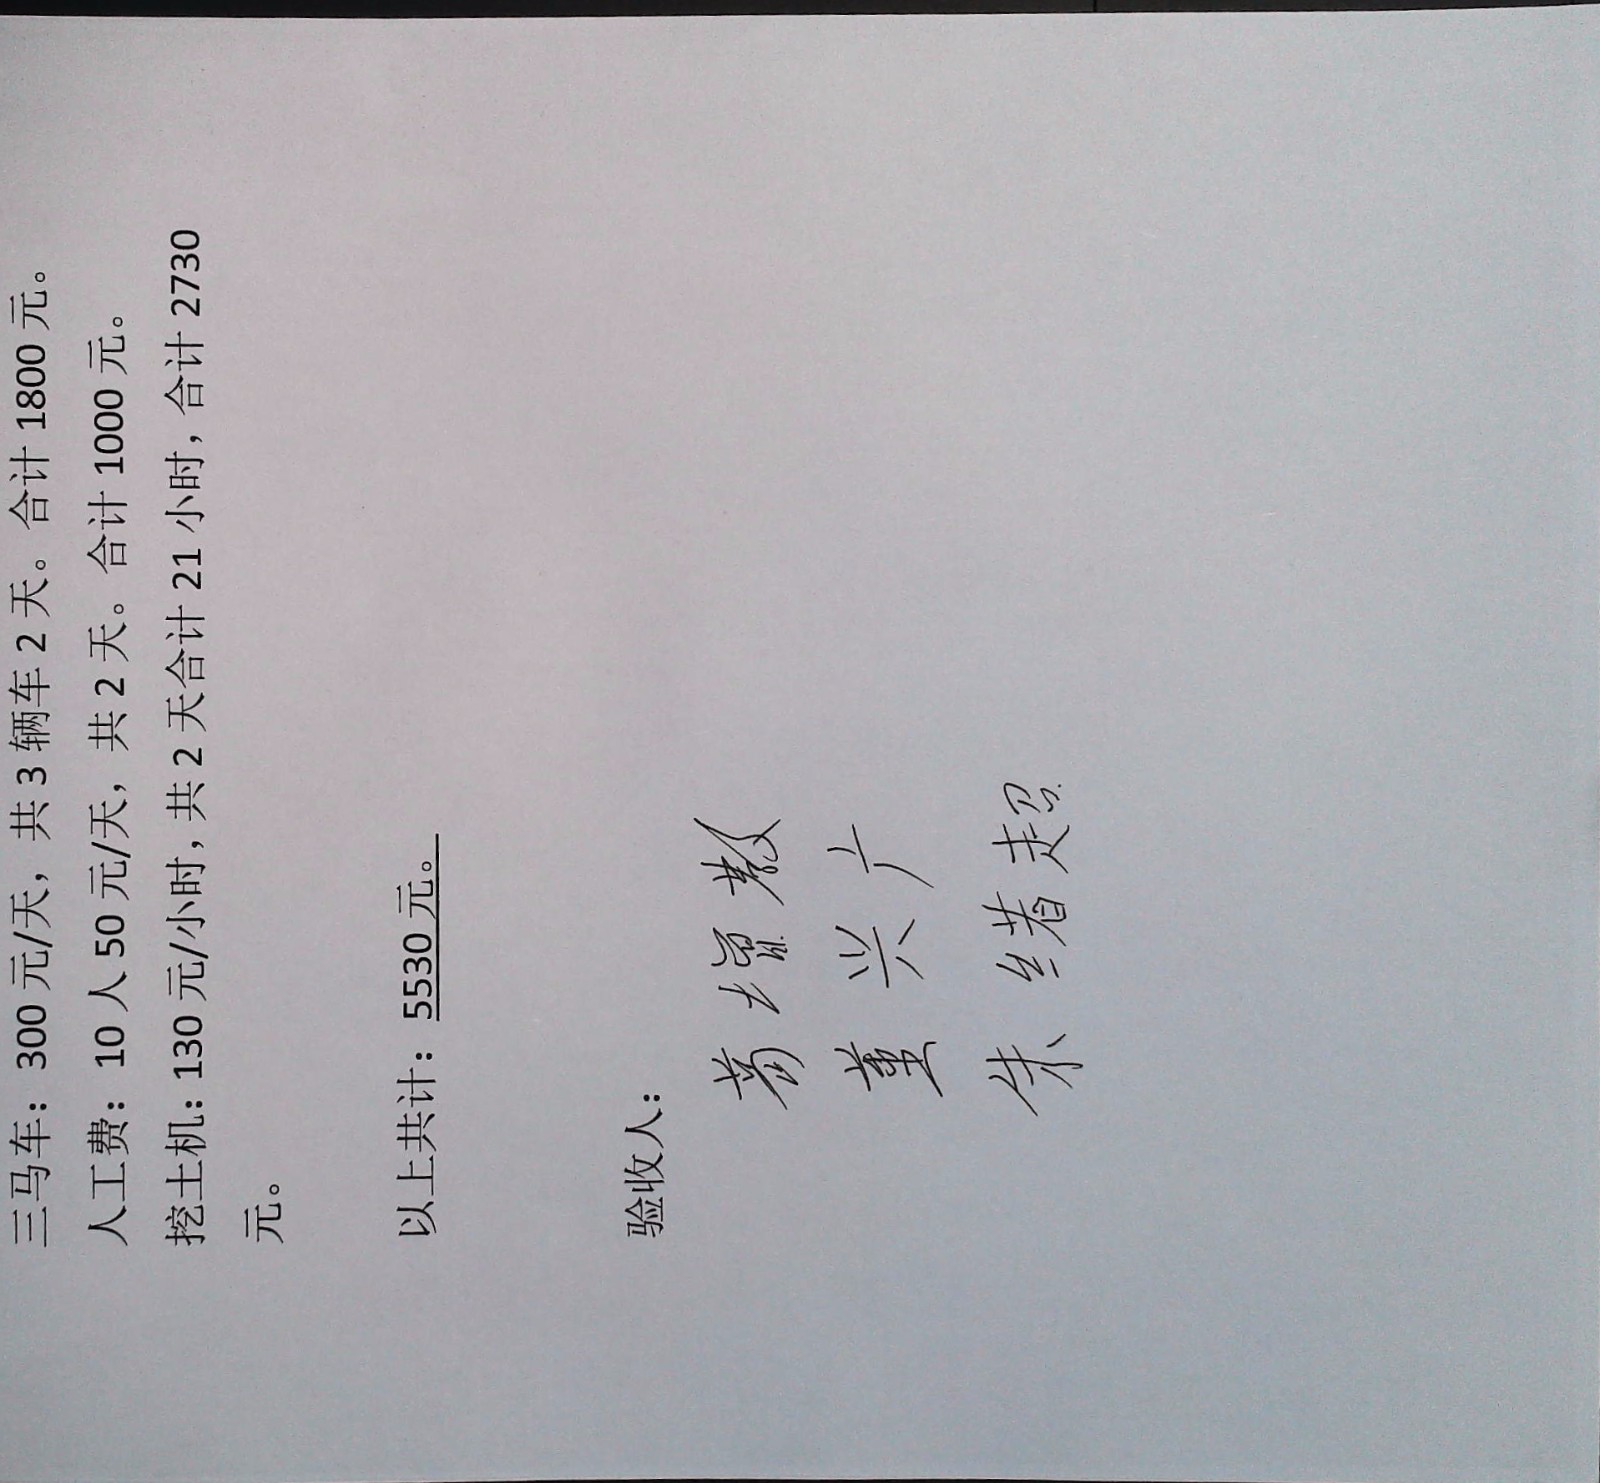 三马车：300元/天，共3辆车2天。合计1800元。
人工费：10人50元/天，共2天。合计1000元。
挖土机：130元/小时，共2天合计21小时，合计2730
元。
以上共计：5530元。
验收人：
葛增教
董兴广
朱绪超